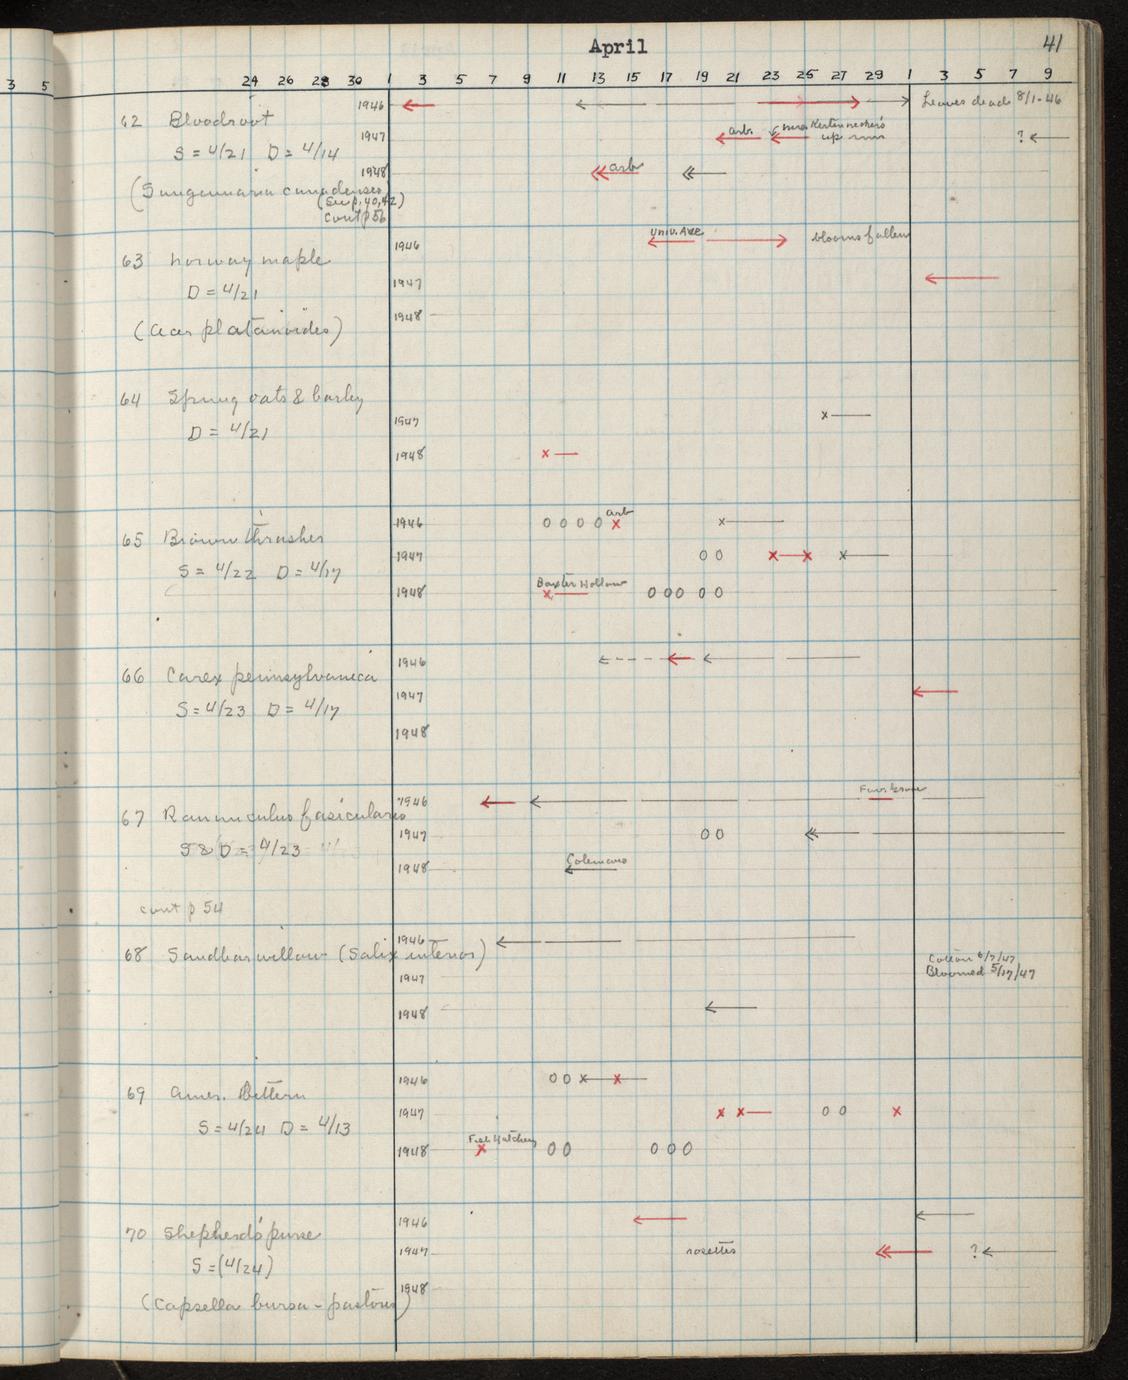 April 41
3 5 24 26 28 30 1 3 5 7 9 11 13 15 17 19 21 23 25 27 29 1 3 5 7 9
1946 Leaves dead 8/1-46
62 Bloodroot
1947 arb. near up ?
S = 4/21 D = 4/14
1948 arb
(Sanguinaria canadensis
(See p. 40, 42)
cont p 56
1946 Univ. Ave blooms fallen
63 Norway maple
1947
D = 4/21
1948
(Acer platanoides)
64 Spring oats & barley
1947 x
D = 4/21
1948 x
arb
1946 0 0 0 0 x x
65 Brown thrasher
1947 0 0 x x x
S = 4/22 D = 4/17
Baxter Hollow
1948 x 0 0 0 0 0
1946
66 Carex pennsylvanica
1947
S = 4/23 D = 4/17
1948
1946
67 Ranunculus fasicularis
1947 0 0
S & D = 4/23
1948 Colemans
cont p 54
1946
68 Sandbar willow (Salix interior)
1947 Cotton 6/7/47
Bloomed 5/17/47
1948
1946 0 0 x x
69 Amer. Bittern
1947 x x 0 0 x
S = 4/24 D = 4/13
Fish Hatchery
1948 x 0 0 0 0 0
1946
70 Shepherd's purse
1947 rosettes ?
S = (4/24)
1948
(Capsella bursa-pastoris)